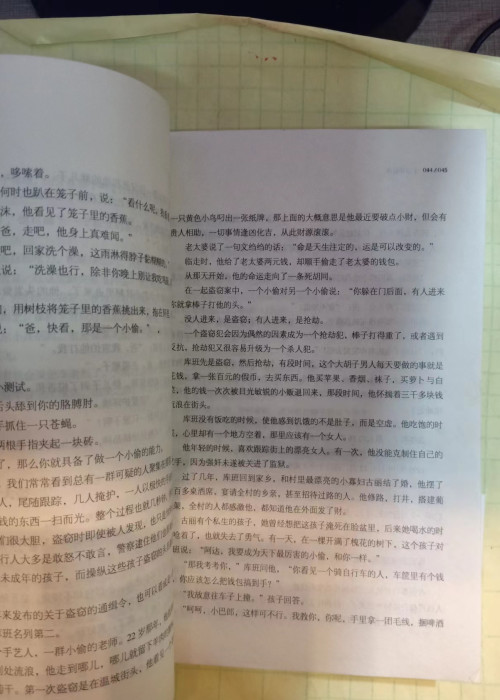 ，哆嗦着。
何时也趴在笼子前，说：“看什么呢，
沫，他看见了笼子里的香蕉。
爸，走吧，他身上真难闻。”
吧，回家洗个澡，这雨淋得脖子
说：“洗澡也行，除非你晚上别让我
，用树枝将笼子里的香蕉挑出来，
说：“爸，快看，那是一个小偷，”，
小测试。
舌头舔到你的胳膊肘。
手抓住一只苍蝇。
两根手指夹起一块砖。
了，那么你就具备了做一个小偷的能力。
我们常常看到总有一群可疑的人聚集在
人，尾随跟踪，几人掩护，一人以极快的
钱的东西一扫而光。整个过程也就几秒钟，
们很大胆，盗窃时即使被人发现，也只是
行人大多是敢怒不敢言，警察逮住他们
未成年的孩子，而操纵这些孩子盗窃的
来发布的关于盗窃的通缉令，也可以看成
班名列第二。
个手艺人，一群小偷的老师。22岁那年，
到处流浪，他走到哪儿，哪儿就留下
霉干。第一次盗窃是在温城街头，他看见
044 // 045
一只黄色小鸟叼出一张纸牌，那上面的大概意思是他最近要破点小财，但会有
贵人相助，一切事情逢凶化吉，从此财源滚滚。
老太婆说了一句文绉绉的话：“命是天生注定的，运是可以改变的。”
临走时，他给了老太婆两元钱，却顺手偷走了老太婆的钱包。
从那天开始，他的命运走向了一条死胡同。
在一起盗窃案中，一个小偷对另一个小偷说：“你躲在门后面，有人进来
你就拿棒子打他的头。”
没人进来，是盗窃；有人进来，是抢劫。
一个盗窃犯会因为偶然的因素成为一个抢劫犯，棒子打得重了，或者遇到
反抗，抢劫犯又很容易升级为一个杀人犯。
库班先是盗窃，然后抢劫，有段时间，这个大胡子男人每天要做的事就是
花钱，拿一张百元的假币，去买东西。他买苹果、香烟、袜子，买萝卜与白
菜，他的钱一次次被目光敏锐的小贩退回来，那段时间，他怀揣着三千多块钱
流浪在街头。
库班没有饭吃的时候，使他感到饥饿的不是肚子，而是空虚。他吃饱的时
候，心里却有一个地方空着，那里应该有一个女人。
他年轻的时候，喜欢跟踪街上的漂亮女人，有一次，他没能克制住自己的
手，因为强奸未遂被关进了监狱。
过了几年，库班回到家乡，和村里最漂亮的小寡妇古丽结了婚，他摆了
百多桌酒席，宴请全村的乡亲，甚至招待过路的人。他修路，打井，搭建葡
，全村的人都感激他，都知道他在外面发了财。
古丽有个私生的孩子，她曾经想把这孩子淹死在脸盆里，后来她喝水的时
呛着了，也就失去了勇气。有一天，在一棵开满了槐花的树下，这个孩子对
班说：“阿达，我要成为天下最厉害的小偷，和你一样。”
“那我考考你，”库班问他，“你看见一个骑自行车的人，车筐里有个钱
你应该怎么把钱包搞到手？”
“我故意往车子上撞。”孩子回答。
“呵呵，小巴郎，这样可不行。我教你，你呢，手里拿一团毛线，捆啤酒